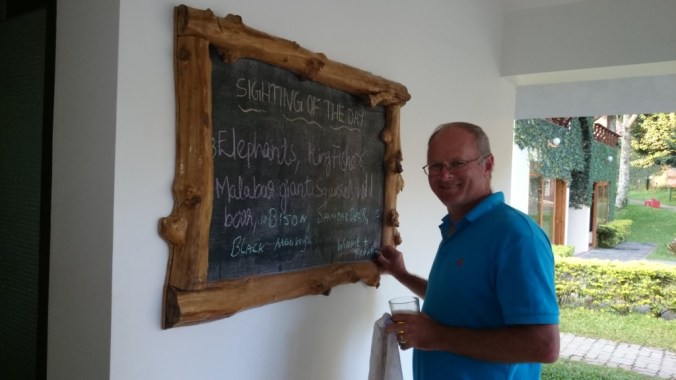 SIGHTING OF THE DAY
Elephants, KingFisher
Malabar giant Squirrel, Wild
boar, BISON SAMBAR DEER,
BLACK